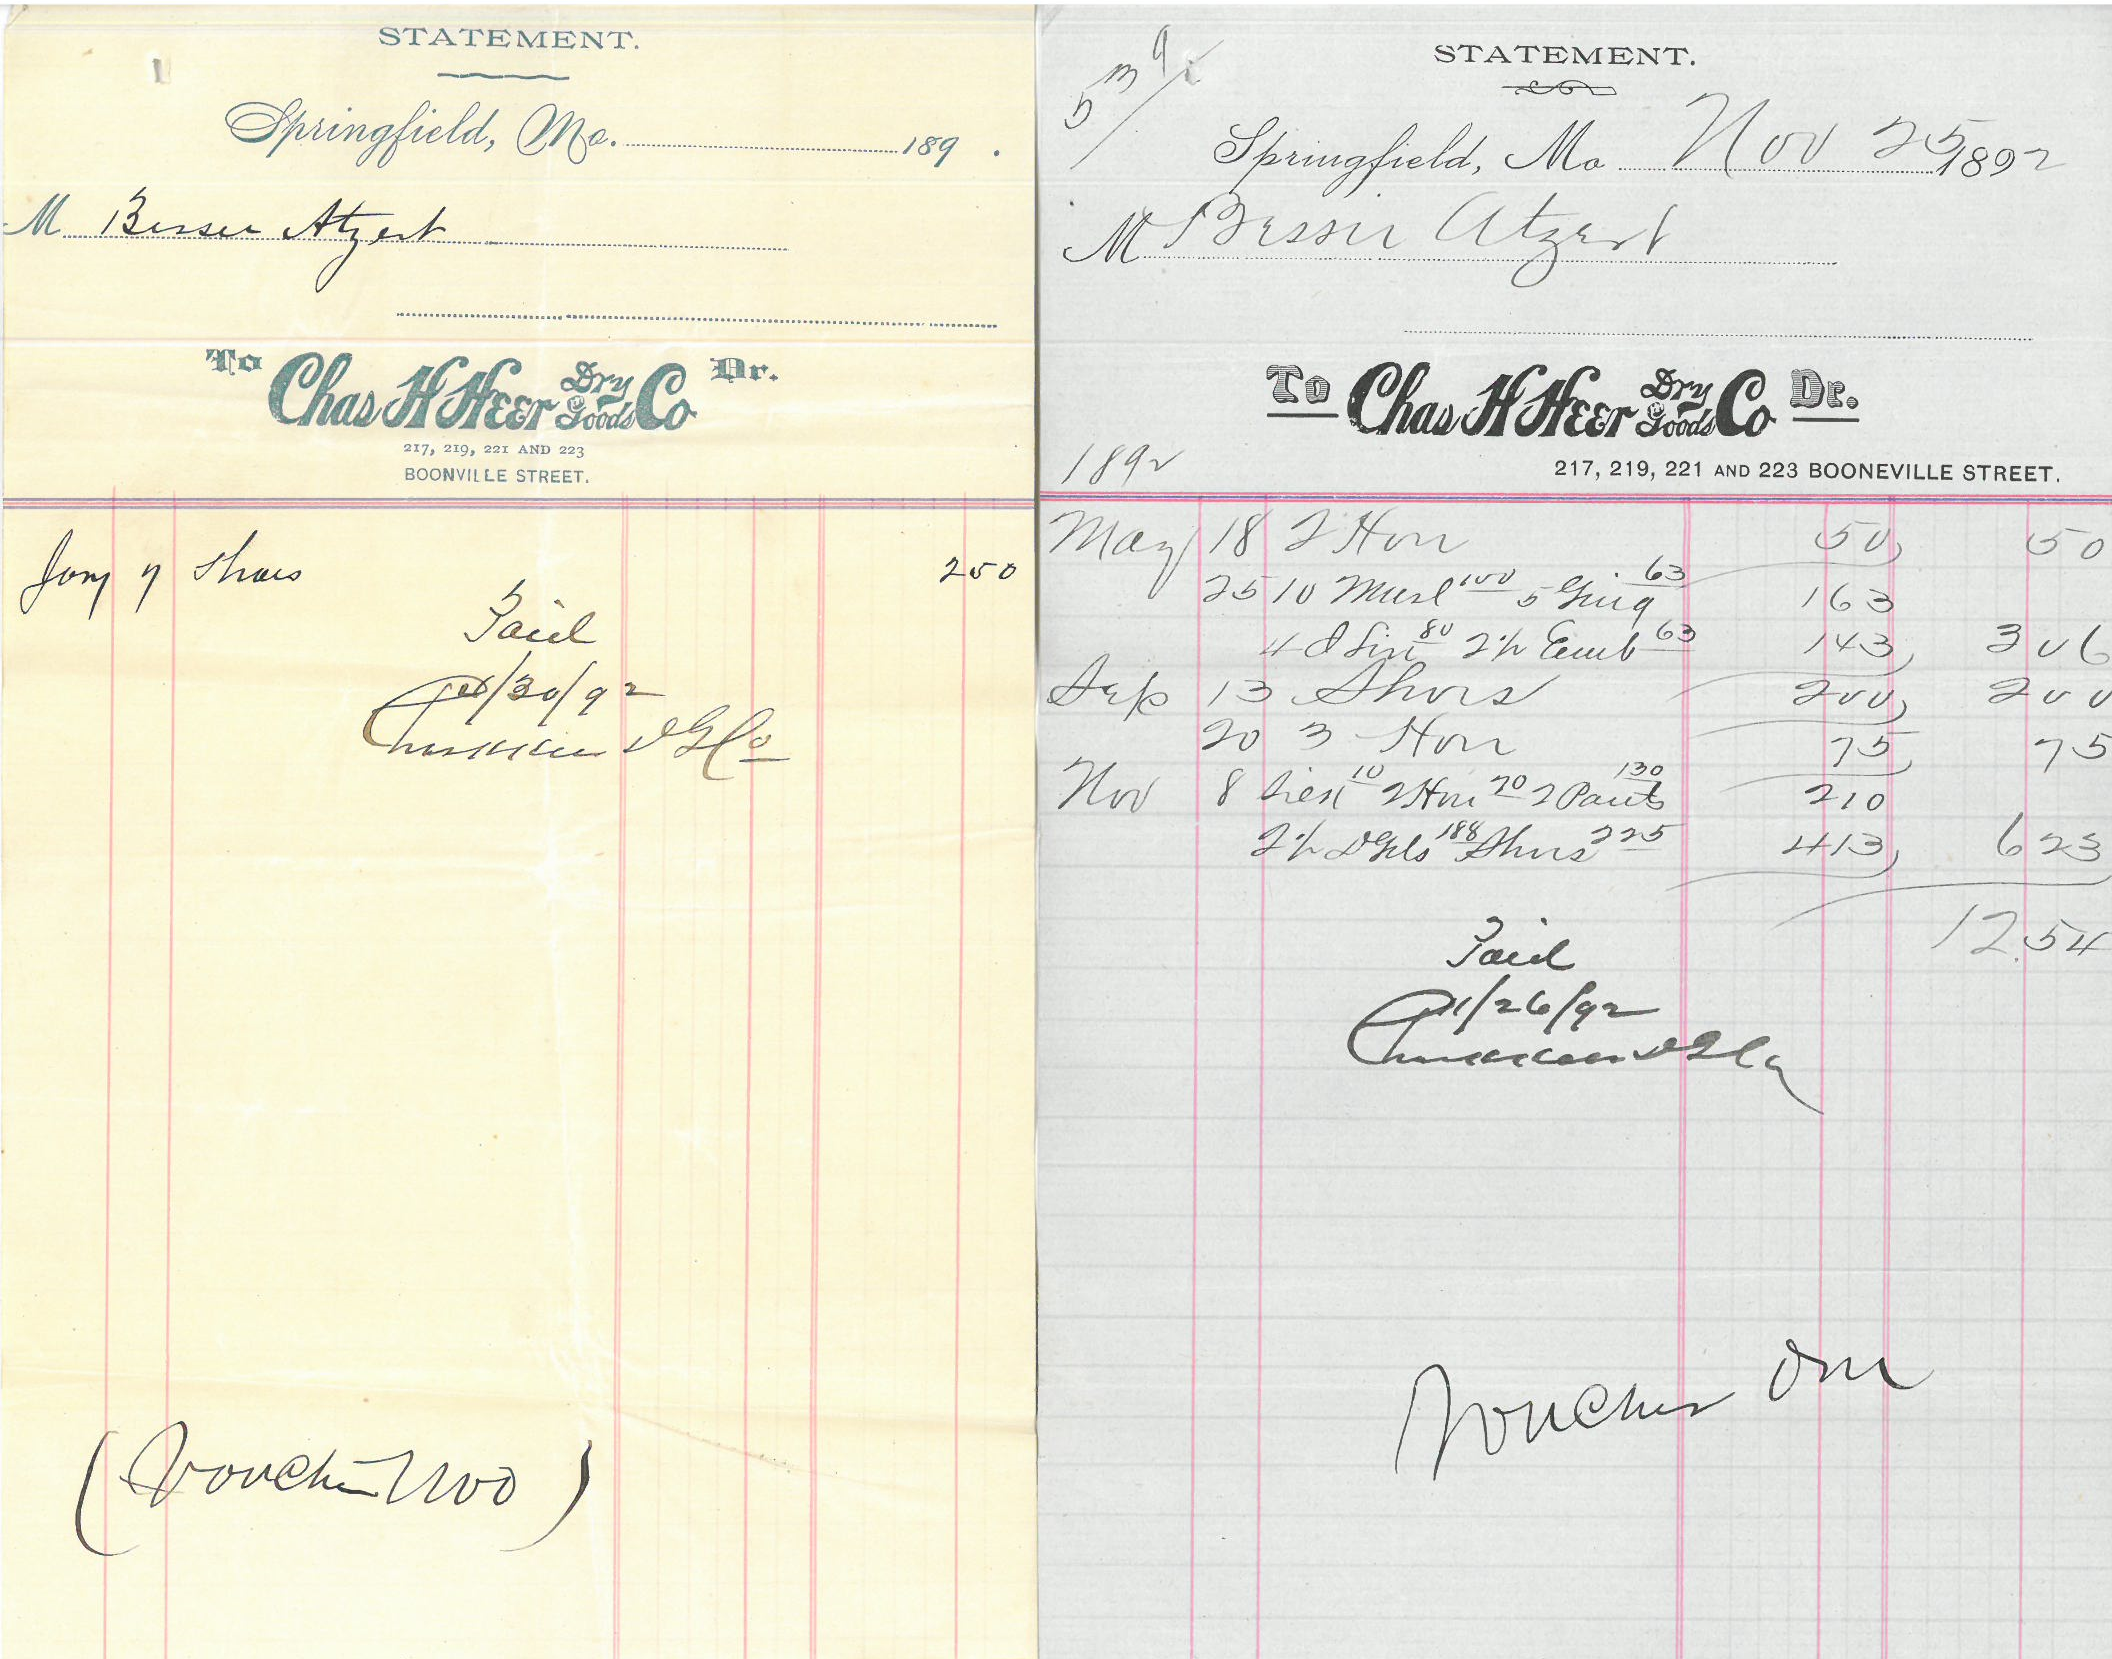 STATEMENT.
Springfield, Mo. 189 .
M Bessie Atzert
To Chas H Heer Dry Goods Co Dr.
217, 219, 221 AND 223
BOONVILLE STREET.
Jany 7 Shoes 250
Paid
/30/92
Chas H Heer D G Co
(Voucher Two)
STATEMENT.
Springfield, Mo Nov 25 1892
M Bessie Atzert
To Chas H Heer Dry Goods Co Dr.
217, 219, 221 AND 223 BOONEVILLE STREET.
1892
May 18 2 Hose 50 50
25 10 Musl 100 5 Ging 63 163
4 Lin 80 2½ Emb 63 143 306
Sep 13 Shoes 200 200
20 3 Hose 75 75
Nov 8 10 2 Hose 70 2 Pants 130 210
2½ 188 Shoes 225 413 623
12.54
Paid
11/26/92
Chas H Heer D G Co
Voucher One